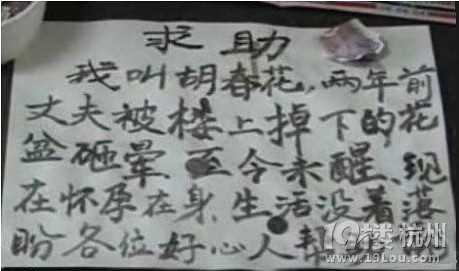 求助
我叫胡春花,两年前
丈夫被楼上掉下的花
盆砸晕、至今未醒、现
在怀孕在身、生活没着落
盼各位好心人帮
19楼杭州
www.19lou.com